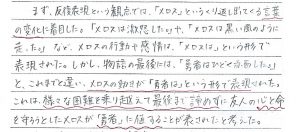 まず、反復表現という観点では、「メロス」というくり返し出てくる言葉
の変化に着目した。「メロスは激怒した。」や、「メロスは黒い風のように
走った。」など、メロスの行動や感情は、「メロスは」という形で
表現されていた。しかし、物語の最後には、「勇者はひどく赤面した。」
と、これまでと違い、メロスの動きが「勇者は」という形で表現された。
これは、様々な困難を乗り越えて最後まで諦めずに友人の心と命
を守ろうとしたメロスが「勇者」に値することが表されたと考えた。